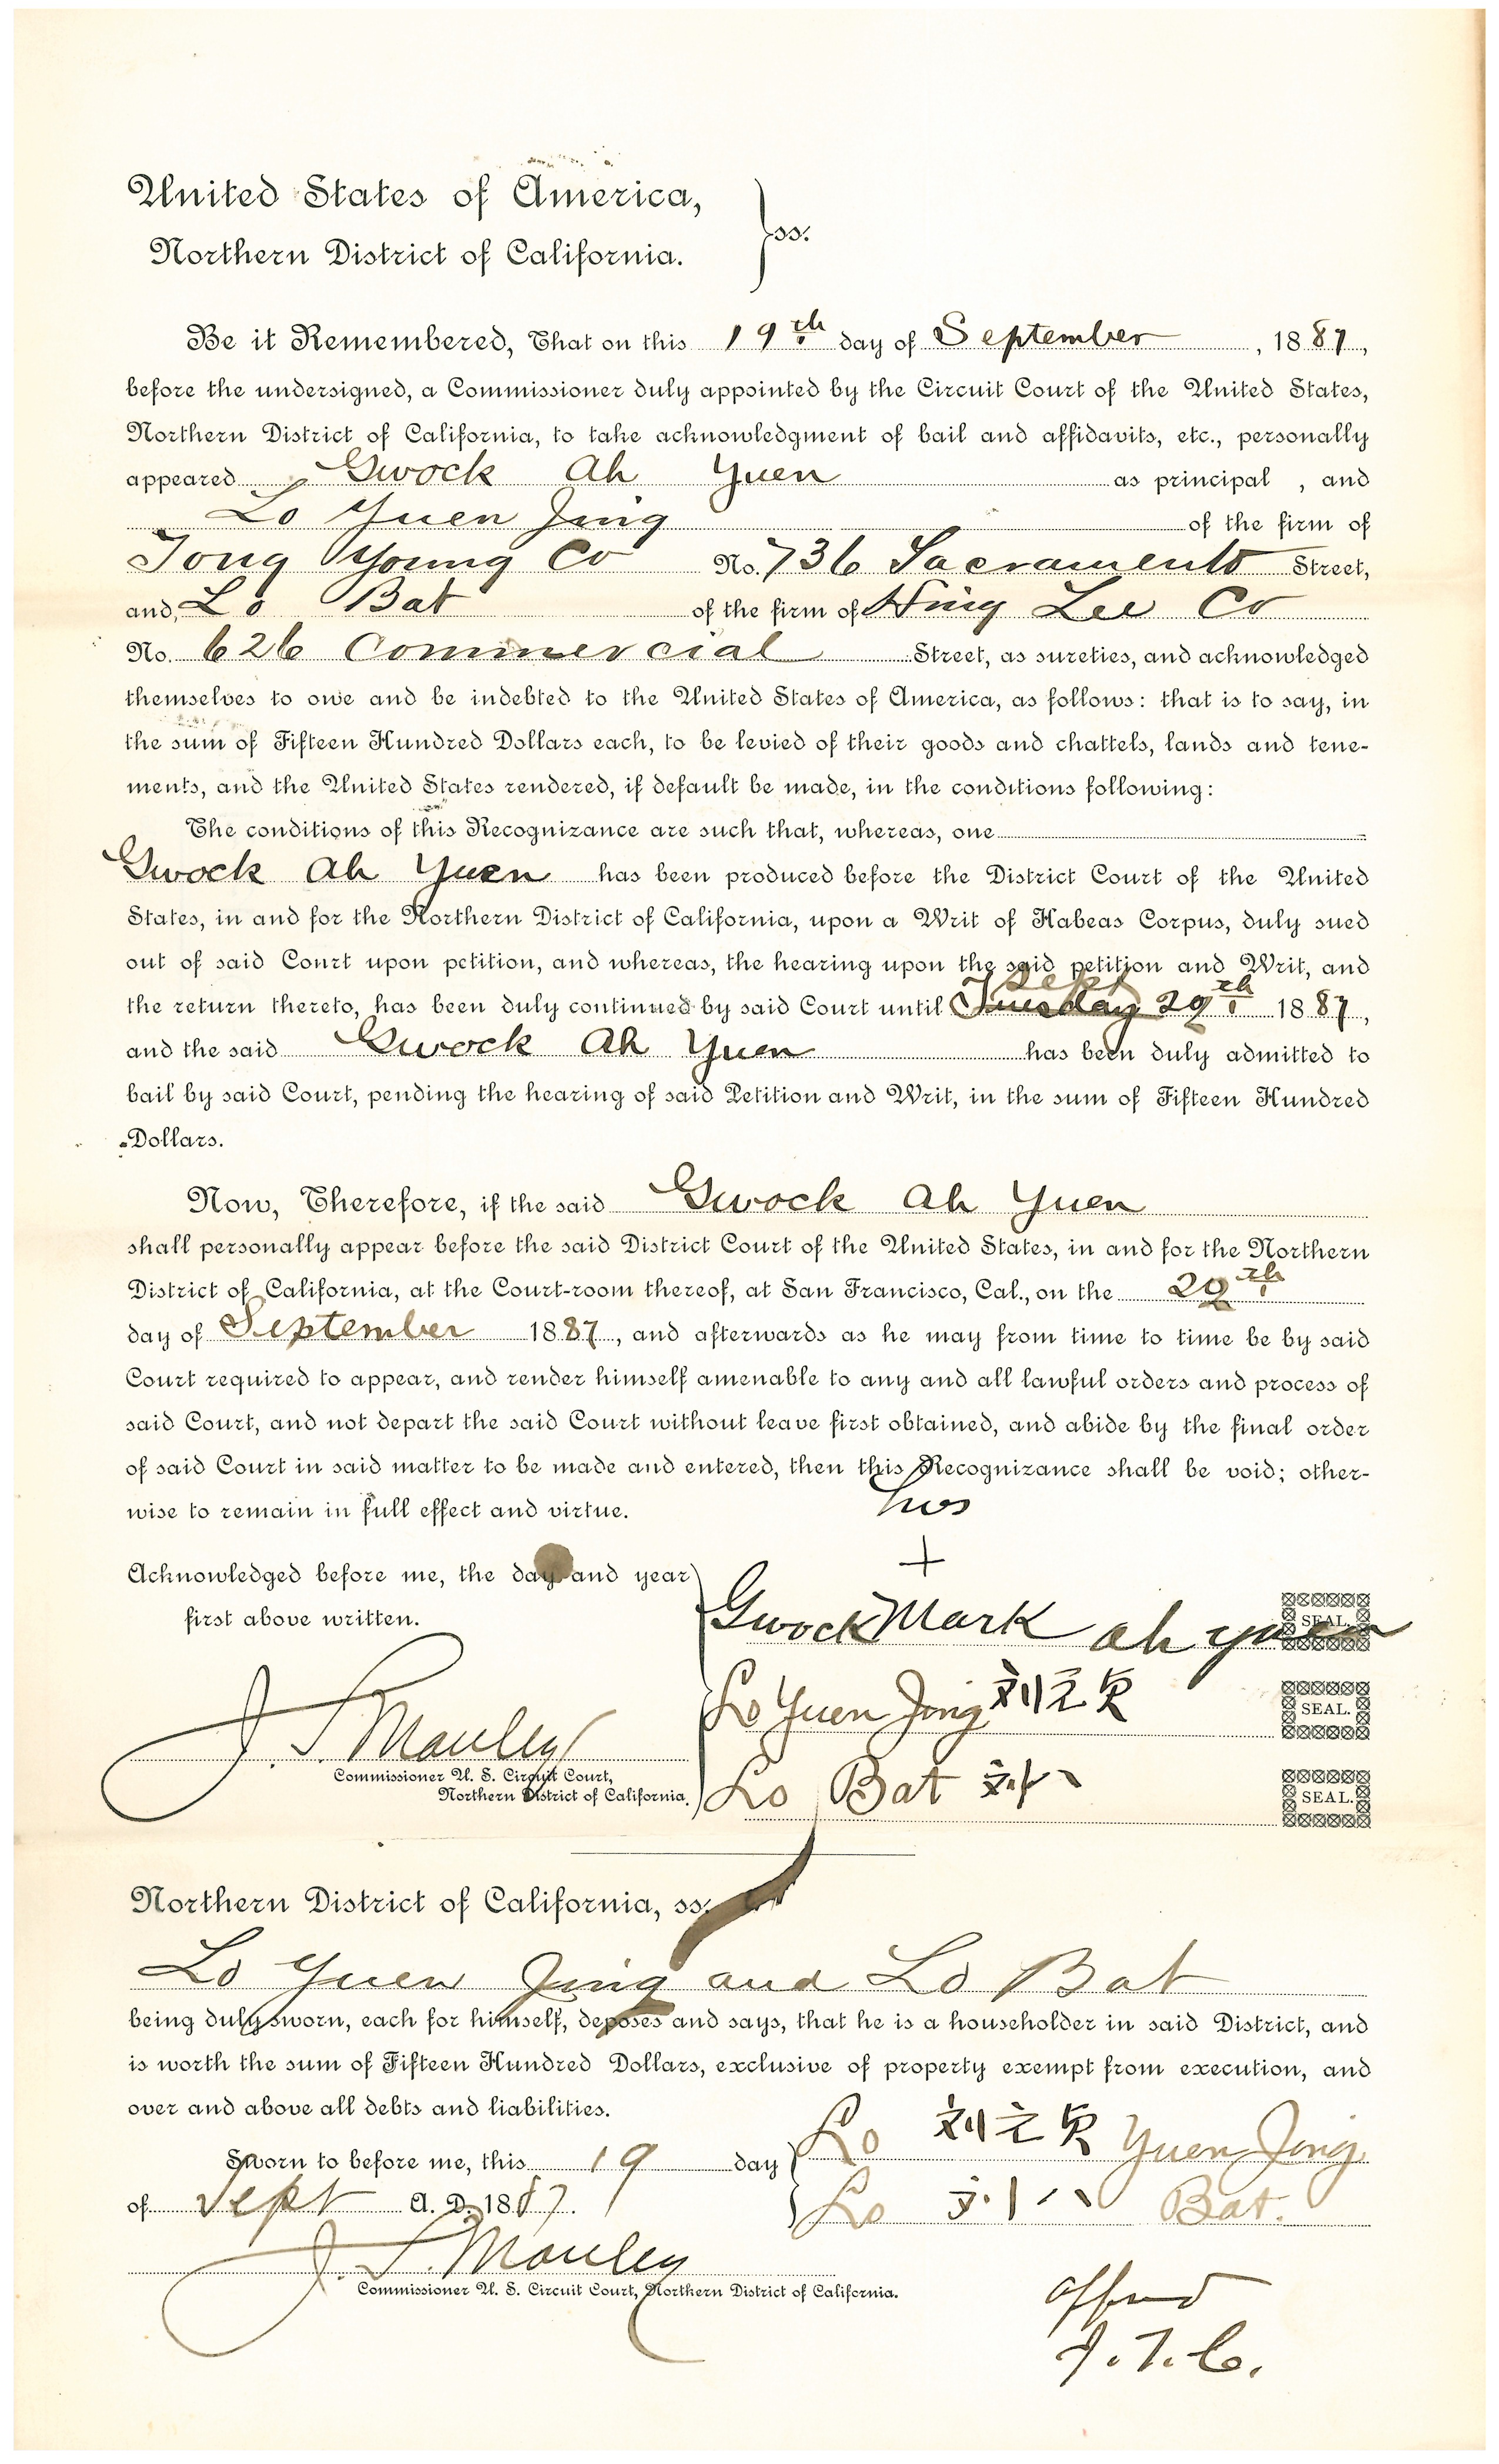 United States of America,
Northern District of California. } ss:
Be it Remembered, That on this 19th day of September, 1887,
before the undersigned, a Commissioner duly appointed by the Circuit Court of the United States,
Northern District of California, to take acknowledgment of bail and affidavits, etc., personally
appeared Gwock Ah Yuen as principal , and
Lo Yuen Jing of the firm of
Tong Young Co No. 736 Sacramento Street,
and, Lo Bat of the firm of Hing Lee Co
No. 626 Commercial Street, as sureties, and acknowledged
themselves to owe and be indebted to the United States of America, as follows: that is to say, in
the sum of Fifteen Hundred Dollars each, to be levied of their goods and chattels, lands and tene-
ments, and the United States rendered, if default be made, in the conditions following:
The conditions of this Recognizance are such that, whereas, one
Gwock Ah Yuen has been produced before the District Court of the United
States, in and for the Northern District of California, upon a Writ of Habeas Corpus, duly sued
out of said Court upon petition, and whereas, the hearing upon the said petition and Writ, and
Sept
the return thereto, has been duly continued by said Court until Tuesday 29th 1887,
and the said Gwock Ah Yuen has been duly admitted to
bail by said Court, pending the hearing of said Petition and Writ, in the sum of Fifteen Hundred
Dollars.
Now, Therefore, if the said Gwock Ah Yuen
shall personally appear before the said District Court of the United States, in and for the Northern
District of California, at the Court-room thereof, at San Francisco, Cal., on the 29th
day of September 1887, and afterwards as he may from time to time be by said
Court required to appear, and render himself amenable to any and all lawful orders and process of
said Court, and not depart the said Court without leave first obtained, and abide by the final order
of said Court in said matter to be made and entered, then this Recognizance shall be void; other-
wise to remain in full effect and virtue.
his
+
Acknowledged before me, the day and year
first above written.
Gwock Mark ah yuen SEAL.
Lo Yuen Jing 刘 SEAL.
J. S. Manley
Commissioner U. S. Circuit Court,
Northern District of California.
Lo Bat 刘八 SEAL.
Northern District of California, ss:
Lo Yuen Jing and Lo Bat
being duly sworn, each for himself, deposes and says, that he is a householder in said District, and
is worth the sum of Fifteen Hundred Dollars, exclusive of property exempt from execution, and
over and above all debts and liabilities.
Sworn to before me, this 19 day
of Sept A. D. 1887.
Lo 刘 Yuen Jing
Lo 刘八 Bat.
J. S. Manley
Commissioner U. S. Circuit Court, Northern District of California.
J.T.C.